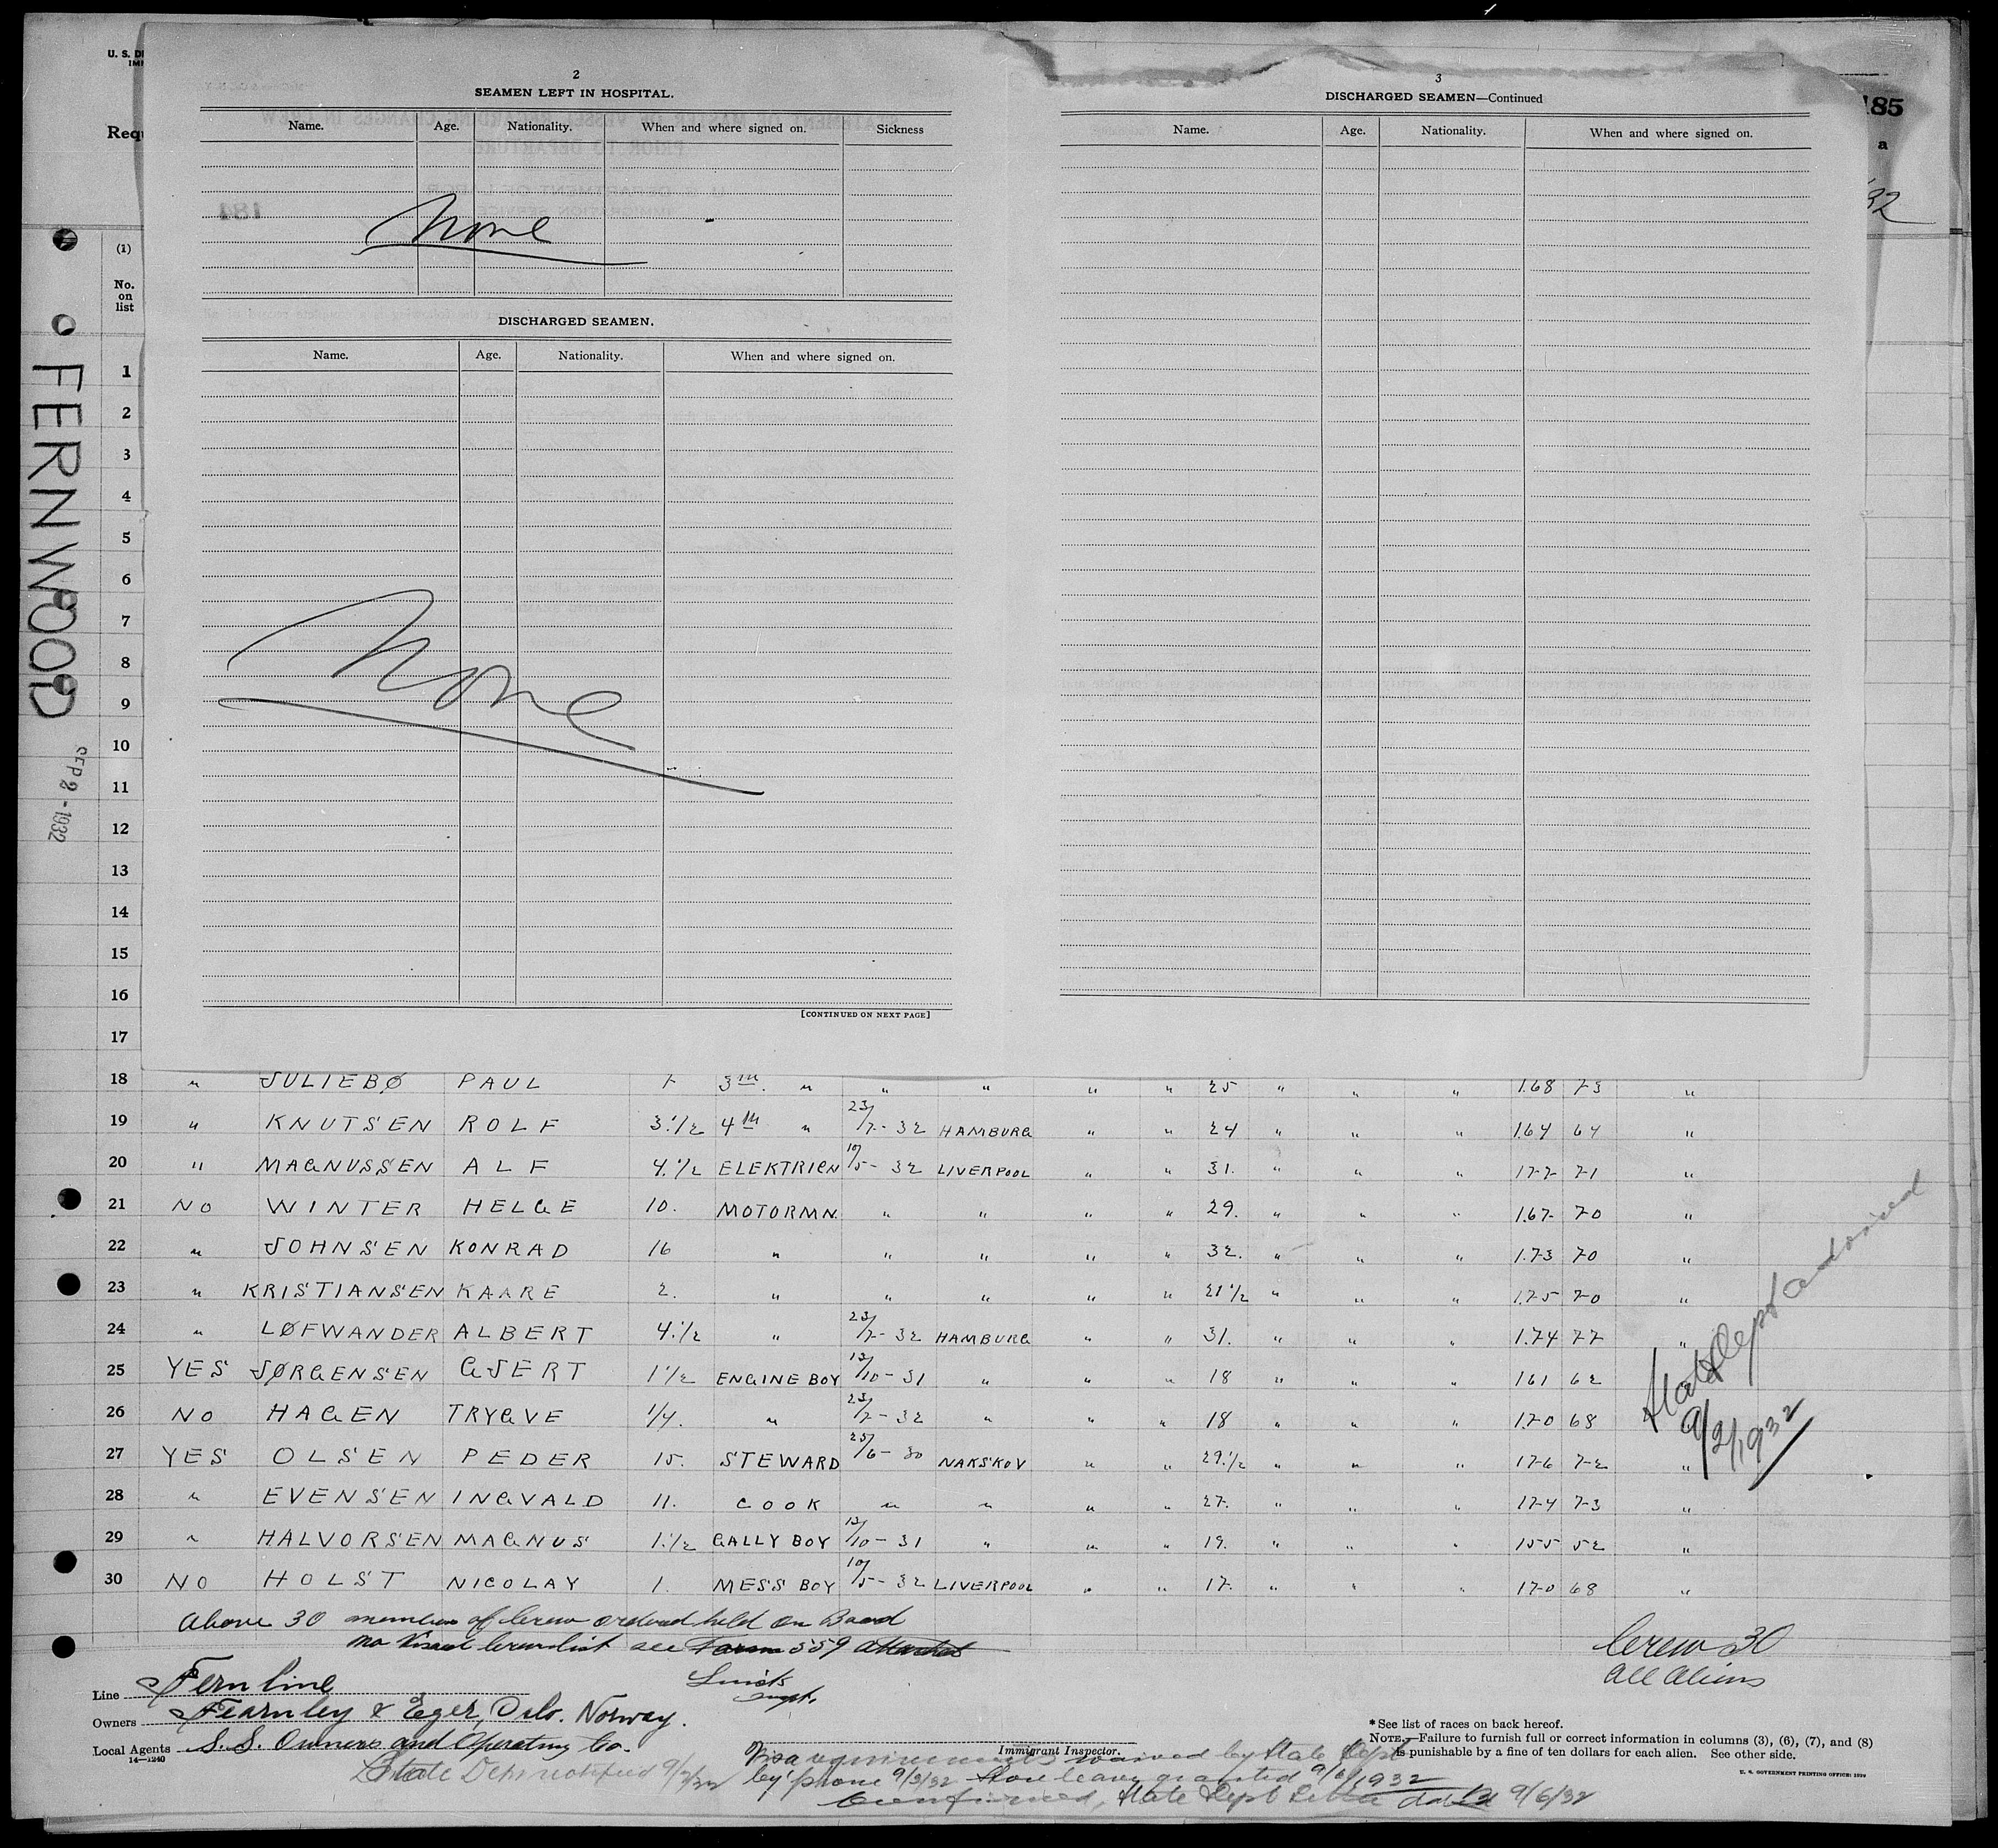 U. S. DE
IMM
Requ
2
SEAMEN LEFT IN HOSPITAL.
Name. Age. Nationality. When and where signed on. Sickness
None
DISCHARGED SEAMEN.
Name. Age. Nationality. When and where signed on.
None
[CONTINUED ON NEXT PAGE]
3
DISCHARGED SEAMEN—Continued
Name. Age. Nationality. When and where signed on.
185
a
32
(1)
No.
on
list
FERNWOOD
SEP 2 - 1932
1
2
3
4
5
6
7
8
9
10
11
12
13
14
15
16
17
18 " JULIEBØ PAUL 7 3rd " " " " " 25 " " " 1.68 73 "
19 " KNUTSEN ROLF 3.1/2 4th " 23/7-32 HAMBURG " " 24 " " " 1.64 64 "
20 " MAGNUSSEN ALF 4.1/2 ELEKTRICN 10/5-32 LIVERPOOL " " 31. " " " 172 71 "
21 NO WINTER HELGE 10. MOTORMN. " " " " 29. " " " 1.67 70 "
22 " JOHNSEN KONRAD 16 " " " " " 32. " " " 1.73 70 "
23 " KRISTIANSEN KAARE 2. " " " " " 21 1/2 " " " 1.75 70 "
24 " LØFWANDER ALBERT 4.1/2 " 23/7-32 HAMBURG " " 31. " " " 1.74 77 "
25 YES JØRGENSEN GJERT 1 1/2 ENGINE BOY 12/10-31 " " " 18 " " " 161 62
26 NO HAGEN TRYGVE 1/4. " 23/7-32 " " " 18 " " " 170 68
27 YES OLSEN PEDER 15. STEWARD 25/6-30 NAKSKOV " " 29.1/2 " " " 176 72 "
28 " EVENSEN INGVALD 11. COOK " " " " 27. " " " 174 73 "
29 " HALVORSEN MAGNUS 1.1/2 GALLY BOY 12/10-31 " " " 19. " " " 155 52 "
30 NO HOLST NICOLAY 1. MESS BOY 10/5-32 LIVERPOOL " " 17. " " " 170 68 "
State Dept advised
9/2/1932
Above 30 members of Crew ordered held on Board
no visaed Crewlist see Form 559 attached
Insp.
Crew 30
All Aliens
Line Fern line
Owners Fearnley & Eger, Oslo. Norway.
Local Agents S. S. Owners and Operating Co.
14—1240
Immigrant Inspector.
State Dept notified 9/2/32
Visa requirements waived by State Dept
by 'phone 9/3/32 Shore leave granted 9/6/1932
Confirmed, State Dept Letter dated 9/6/32
* See list of races on back hereof.
NOTE.—Failure to furnish full or correct information in columns (3), (6), (7), and (8)
is punishable by a fine of ten dollars for each alien. See other side.
U. S. GOVERNMENT PRINTING OFFICE: 1930